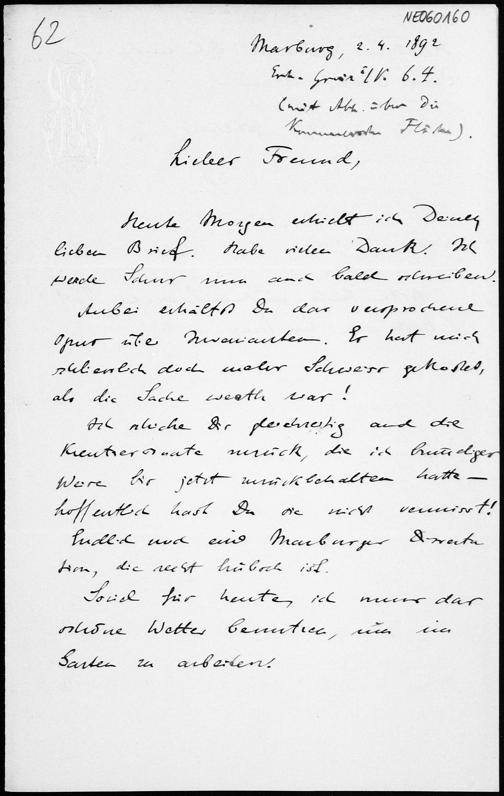 62
NE060160
Marburg, 2. 4. 1892
6. 4.
(mit Abh. über die
Flächen).
Lieber Freund,
Heute Morgen erhielt ich Deinen
lieben Brief. Habe vielen Dank. Ich
werde Schur nun auch bald schreiben.
Anbei erhältst Du das versprochene
Opus über Invarianten. Es hat mich
schliesslich doch mehr Schweiss gekostet,
als die Sache werth war!
Ich schicke Dir gleichzeitig auch die
Kreutzersonate zurück, die ich
Weise bis jetzt zurückbehalten hatte —
hoffentlich hast Du sie nicht vermisst!
Endlich noch eine Marburger Disserta
tion, die recht hübsch ist.
Soviel für heute, ich muss das
schöne Wetter benutzen, um im
Garten zu arbeiten.